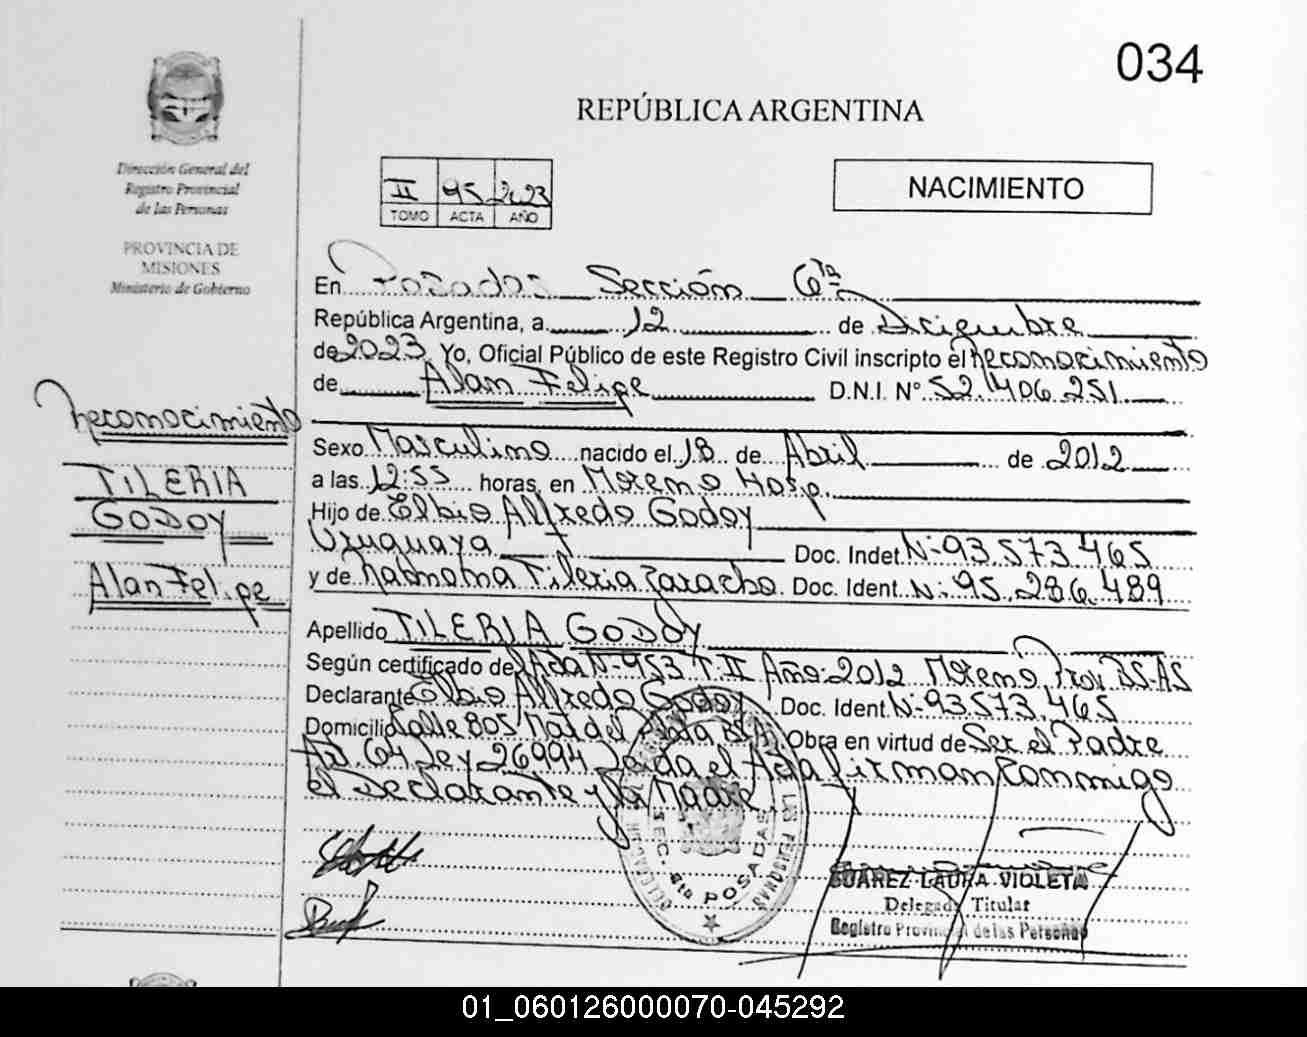 034
REPÚBLICA ARGENTINA
Dirección General del
Registro Provincial
de las Personas
PROVINCIA DE
MISIONES
Ministerio de Gobierno
II 95 2023
TOMO ACTA AÑO
NACIMIENTO
En Posadas Sección 6ta
República Argentina, a 12 de Diciembre
de 2023 Yo, Oficial Público de este Registro Civil inscripto el Reconocimiento
de Alan Felipe D.N.I. Nº 52.406.251
Reconocimiento
TILERIA
GODOY
Alan Felipe
Sexo Masculino nacido el 18 de Abril de 2012
a las 12:55 horas, en Moreno Hosp.
Hijo de Elbio Alfredo Godoy
Uruguaya Doc. Indet N-93.573.465
y de Ramona Tileria Zaracho. Doc. Ident. N-95.286.489
Apellido TILERIA GODOY
Según certificado de Acta N-953 T.II Año: 2012 Moreno Prov BS.AS
Declarante Elbio Alfredo Godoy Doc. Ident. N-93.573.465
Domicilio Calle 805 Mar del Plata Bs.A. Obra en virtud de Ser el Padre
Art. 64 Ley 26994 Leida el Acta firman conmigo
el Declarante y la Madre.
SEC. 6ta POSADAS
SUAREZ LAURA VIOLETA
Delegada Titular
Registro Provincial de las Personas
01_060126000070-045292